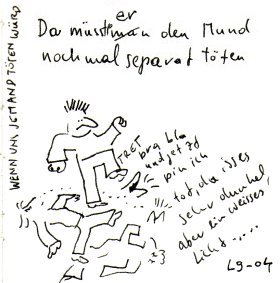 WENN UNS JEMAND TÖTEN WÜRD
er
Da müsstman den Mund
nochmal separat töten
TRET
bra bla
und jetzd
bin ich
tot, da isses
sehr dunkel,
aber ein weisses
Licht.....
L9-04